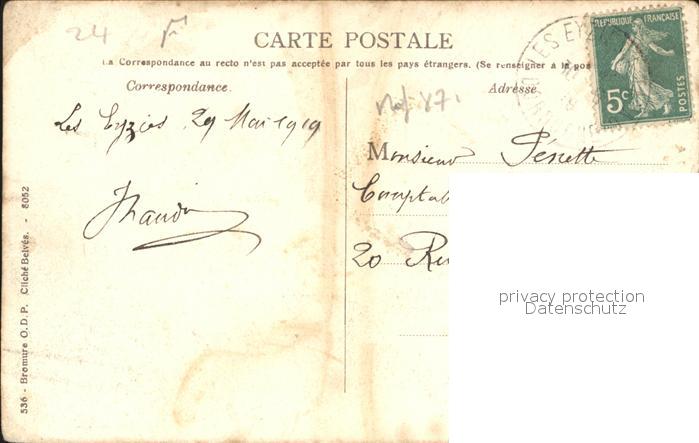 24 F
CARTE POSTALE
La Correspondance au recto n'est pas acceptée par tous les pays étrangers. (Se renseigner à la pos
Correspondance.
Adresse
REPUBLIQUE FRANÇAISE
5c
POSTES
LES EYZ
Les Eyzies 29 Mai 1919
Monsieur
Comptab
20 Ru
536 - Bromure O.D.P. Cliché Belvès. - 8052
privacy protection
Datenschutz